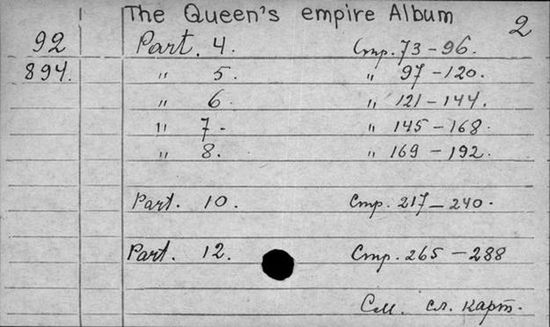 The Queen's empire Album 2
92 Part. 4. Стр. 73-96.
894. " 5. " 97-120.
" 6. " 121-144.
" 7. " 145-168.
" 8. " 169-192.
Part. 10. Стр. 217-240.
Part. 12. Стр. 265-288
См. сл. карт.